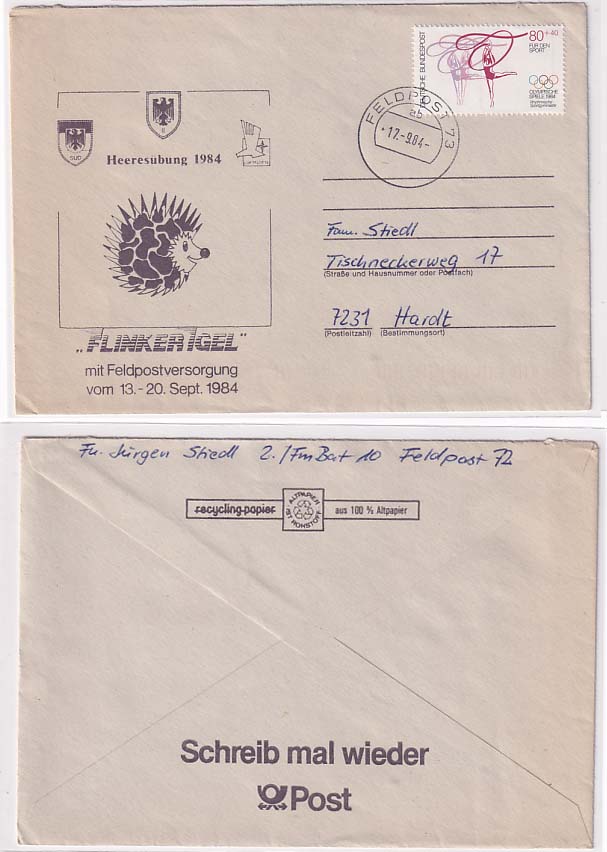 80+40
FÜR DEN
SPORT
DEUTSCHE BUNDESPOST
OLYMPISCHE
SPIELE 1984
Rhythmische
Sportgymnastik
FELDPOST 73
ab
17.-9.84-
II
SÜD
Heeresübung 1984
Fam. Stiedl
Tischneckerweg 17
(Straße und Hausnummer oder Postfach)
7231 Hardt
(Postleitzahl) (Bestimmungsort)
„FLINKER IGEL"
mit Feldpostversorgung
vom 13.-20. Sept. 1984
Fu. Jürgen Stiedl 2./FmBat 10 Feldpost 72
recycling-papier
ALTPAPIER
IST ROHSTOFF
aus 100 % Altpapier
Schreib mal wieder
Post